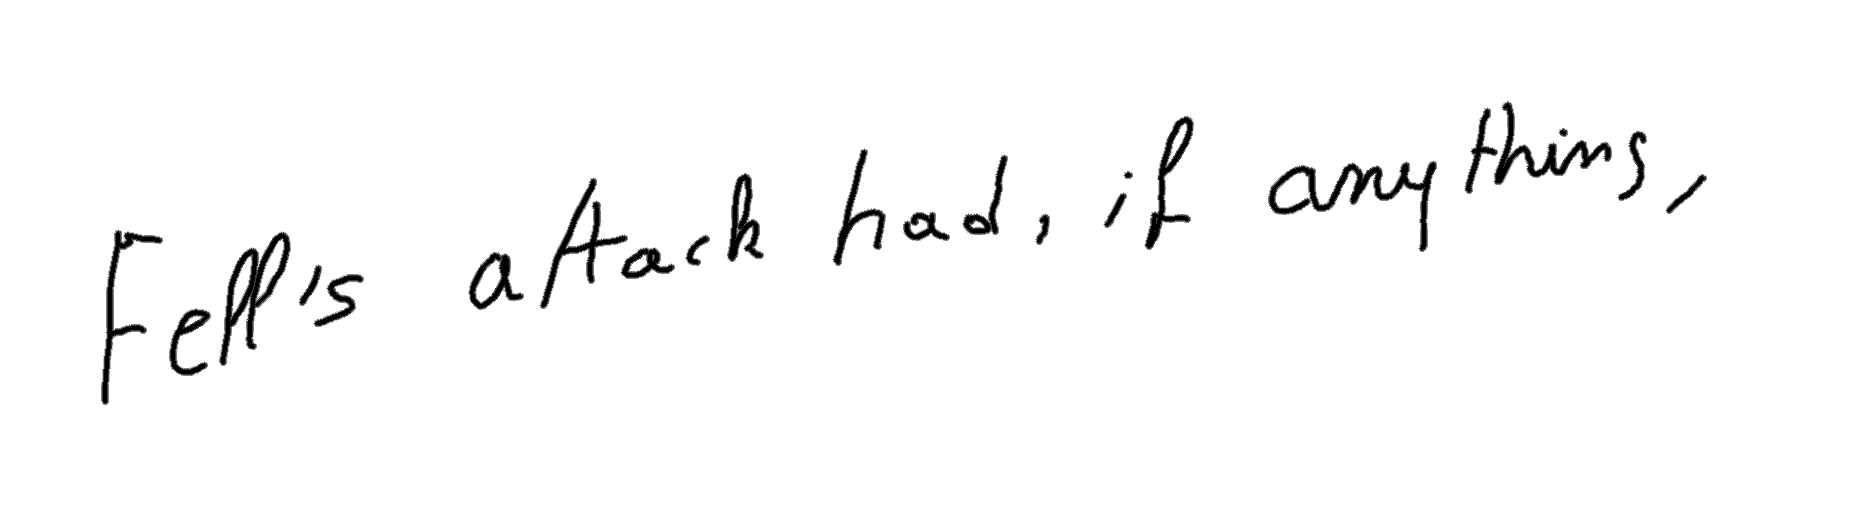 Fell's attack had, if anything,